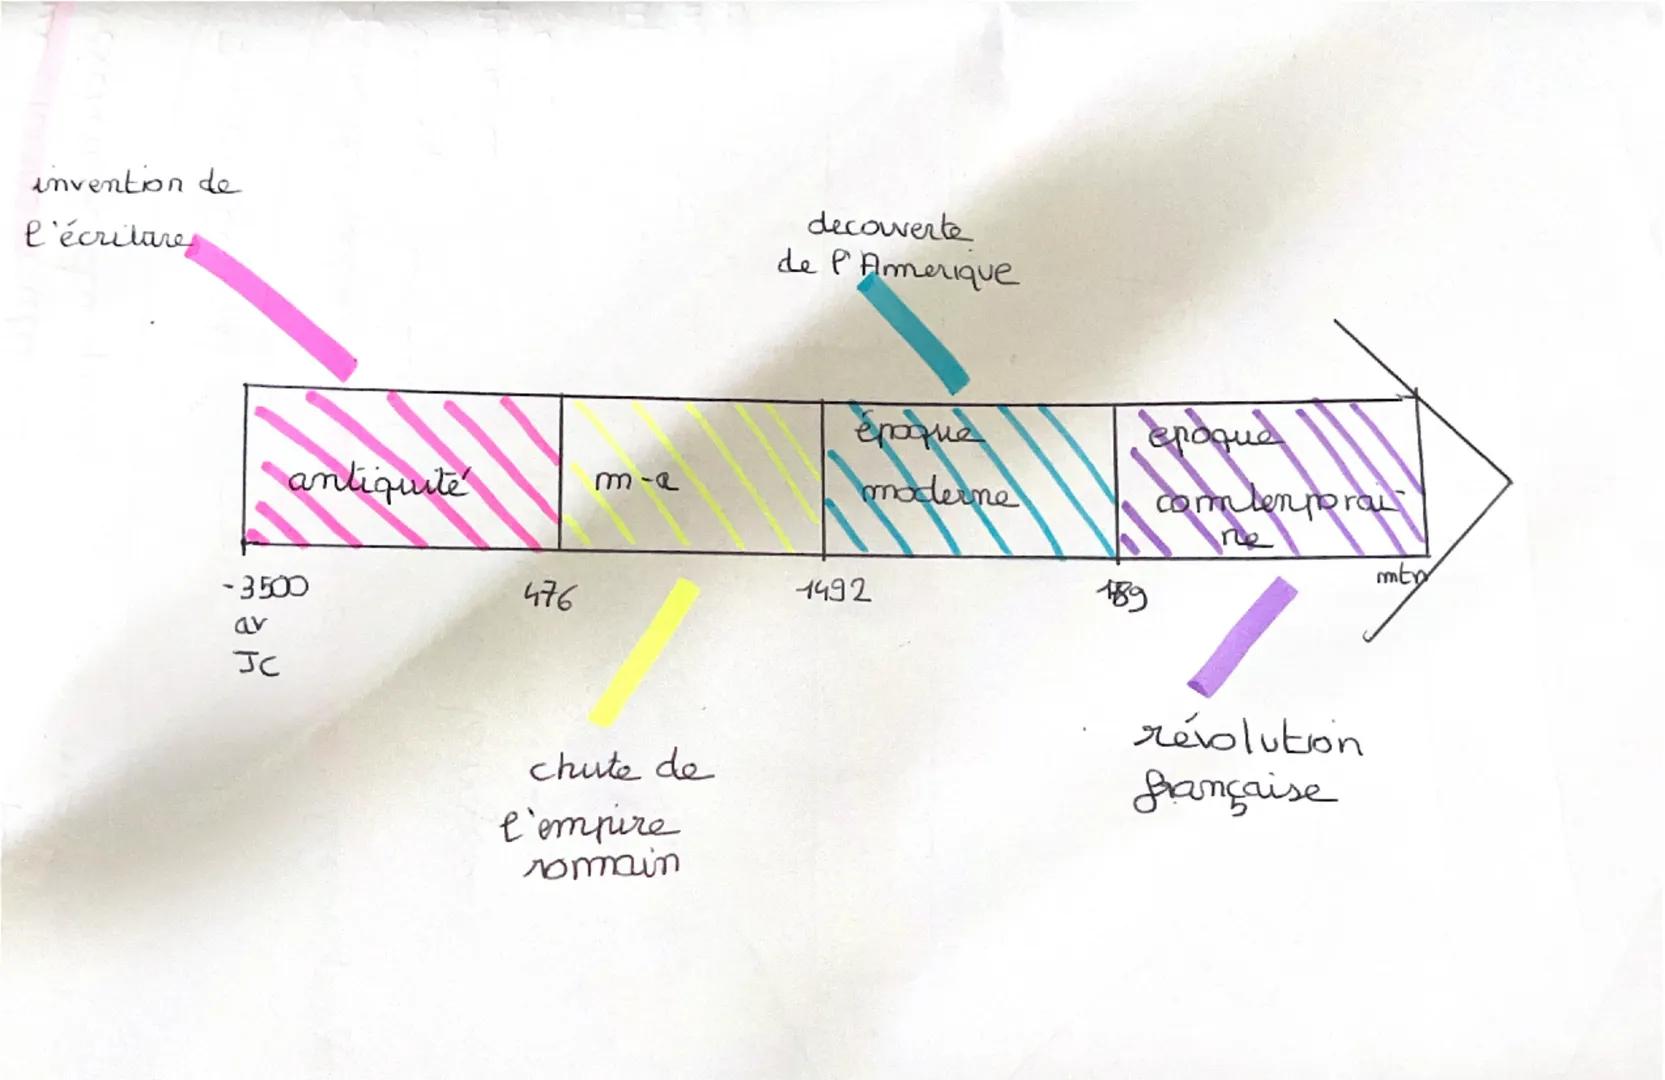 invention de
l'écriture
decouverte
de l'Amerique
antiquité
m-a
époque
moderne
epoque
comtemporai-
ne
-3500
av
JC
476
1492
mtn
chute de
l'empire
romain
révolution
française